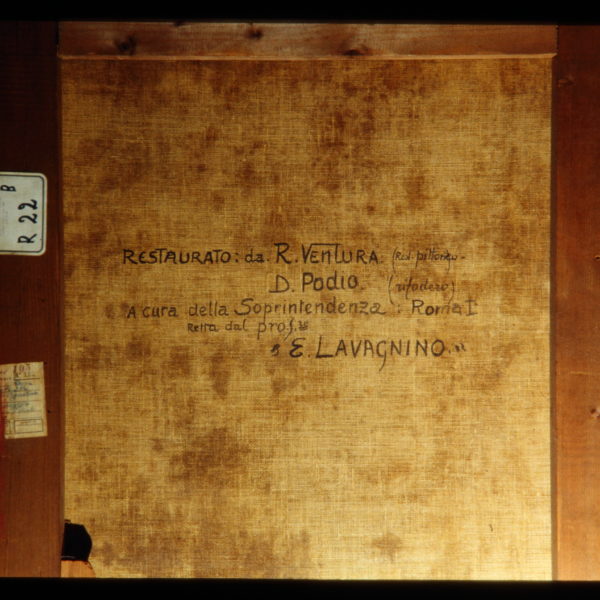 B
R 22
RESTAURATO: da. R. VENTURA (Res. pittorico -
D. PODIO. (rifodero)
A cura della Soprintendenza: Roma I
Retta dal prof.
"E. LAVAGNINO."